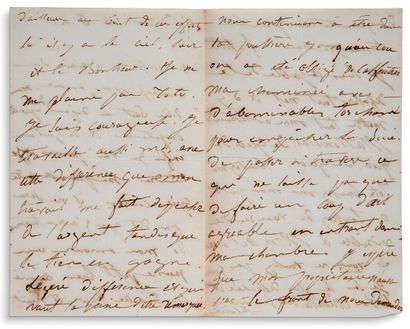 d'ailleurs au bout de ces effets
là il y a le ciel, l'air
et le Bonheur. Je ne
me plains pas Toto.
Je suis courageuse. Je
travaille aussi moi, avec
cette différence que mon
travail me fait dépenser
de l'argent tandis que
le tien en gagne
Légère différence et qui
vaut la peine d'être remarquée
nous continuons à être dans
la poussière
on a été obligé de calfeutrer
ma cheminée avec
d'abominables torchons
pour empêcher la suie
de passer à travers ce
qui ne laisse pas que
de faire un coup d'œil
agréable en entrant dans
ma chambre. J'espère
que mon propriétaire
pas le front de nous demander